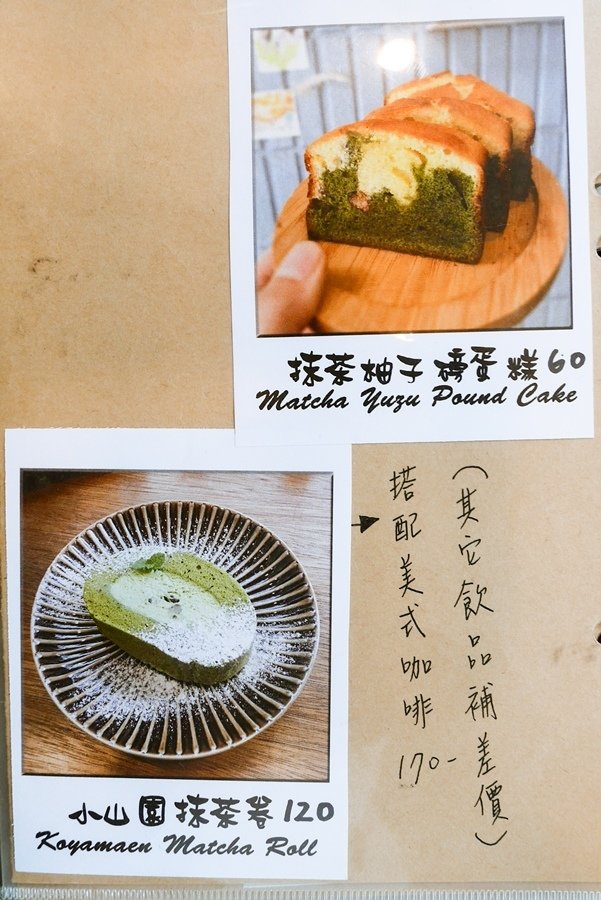 抹茶柚子磅蛋糕60
Matcha Yuzu Pound Cake
小山園抹茶卷120
Koyamaen Matcha Roll
搭配美式咖啡 170-
(其它飲品補差價)